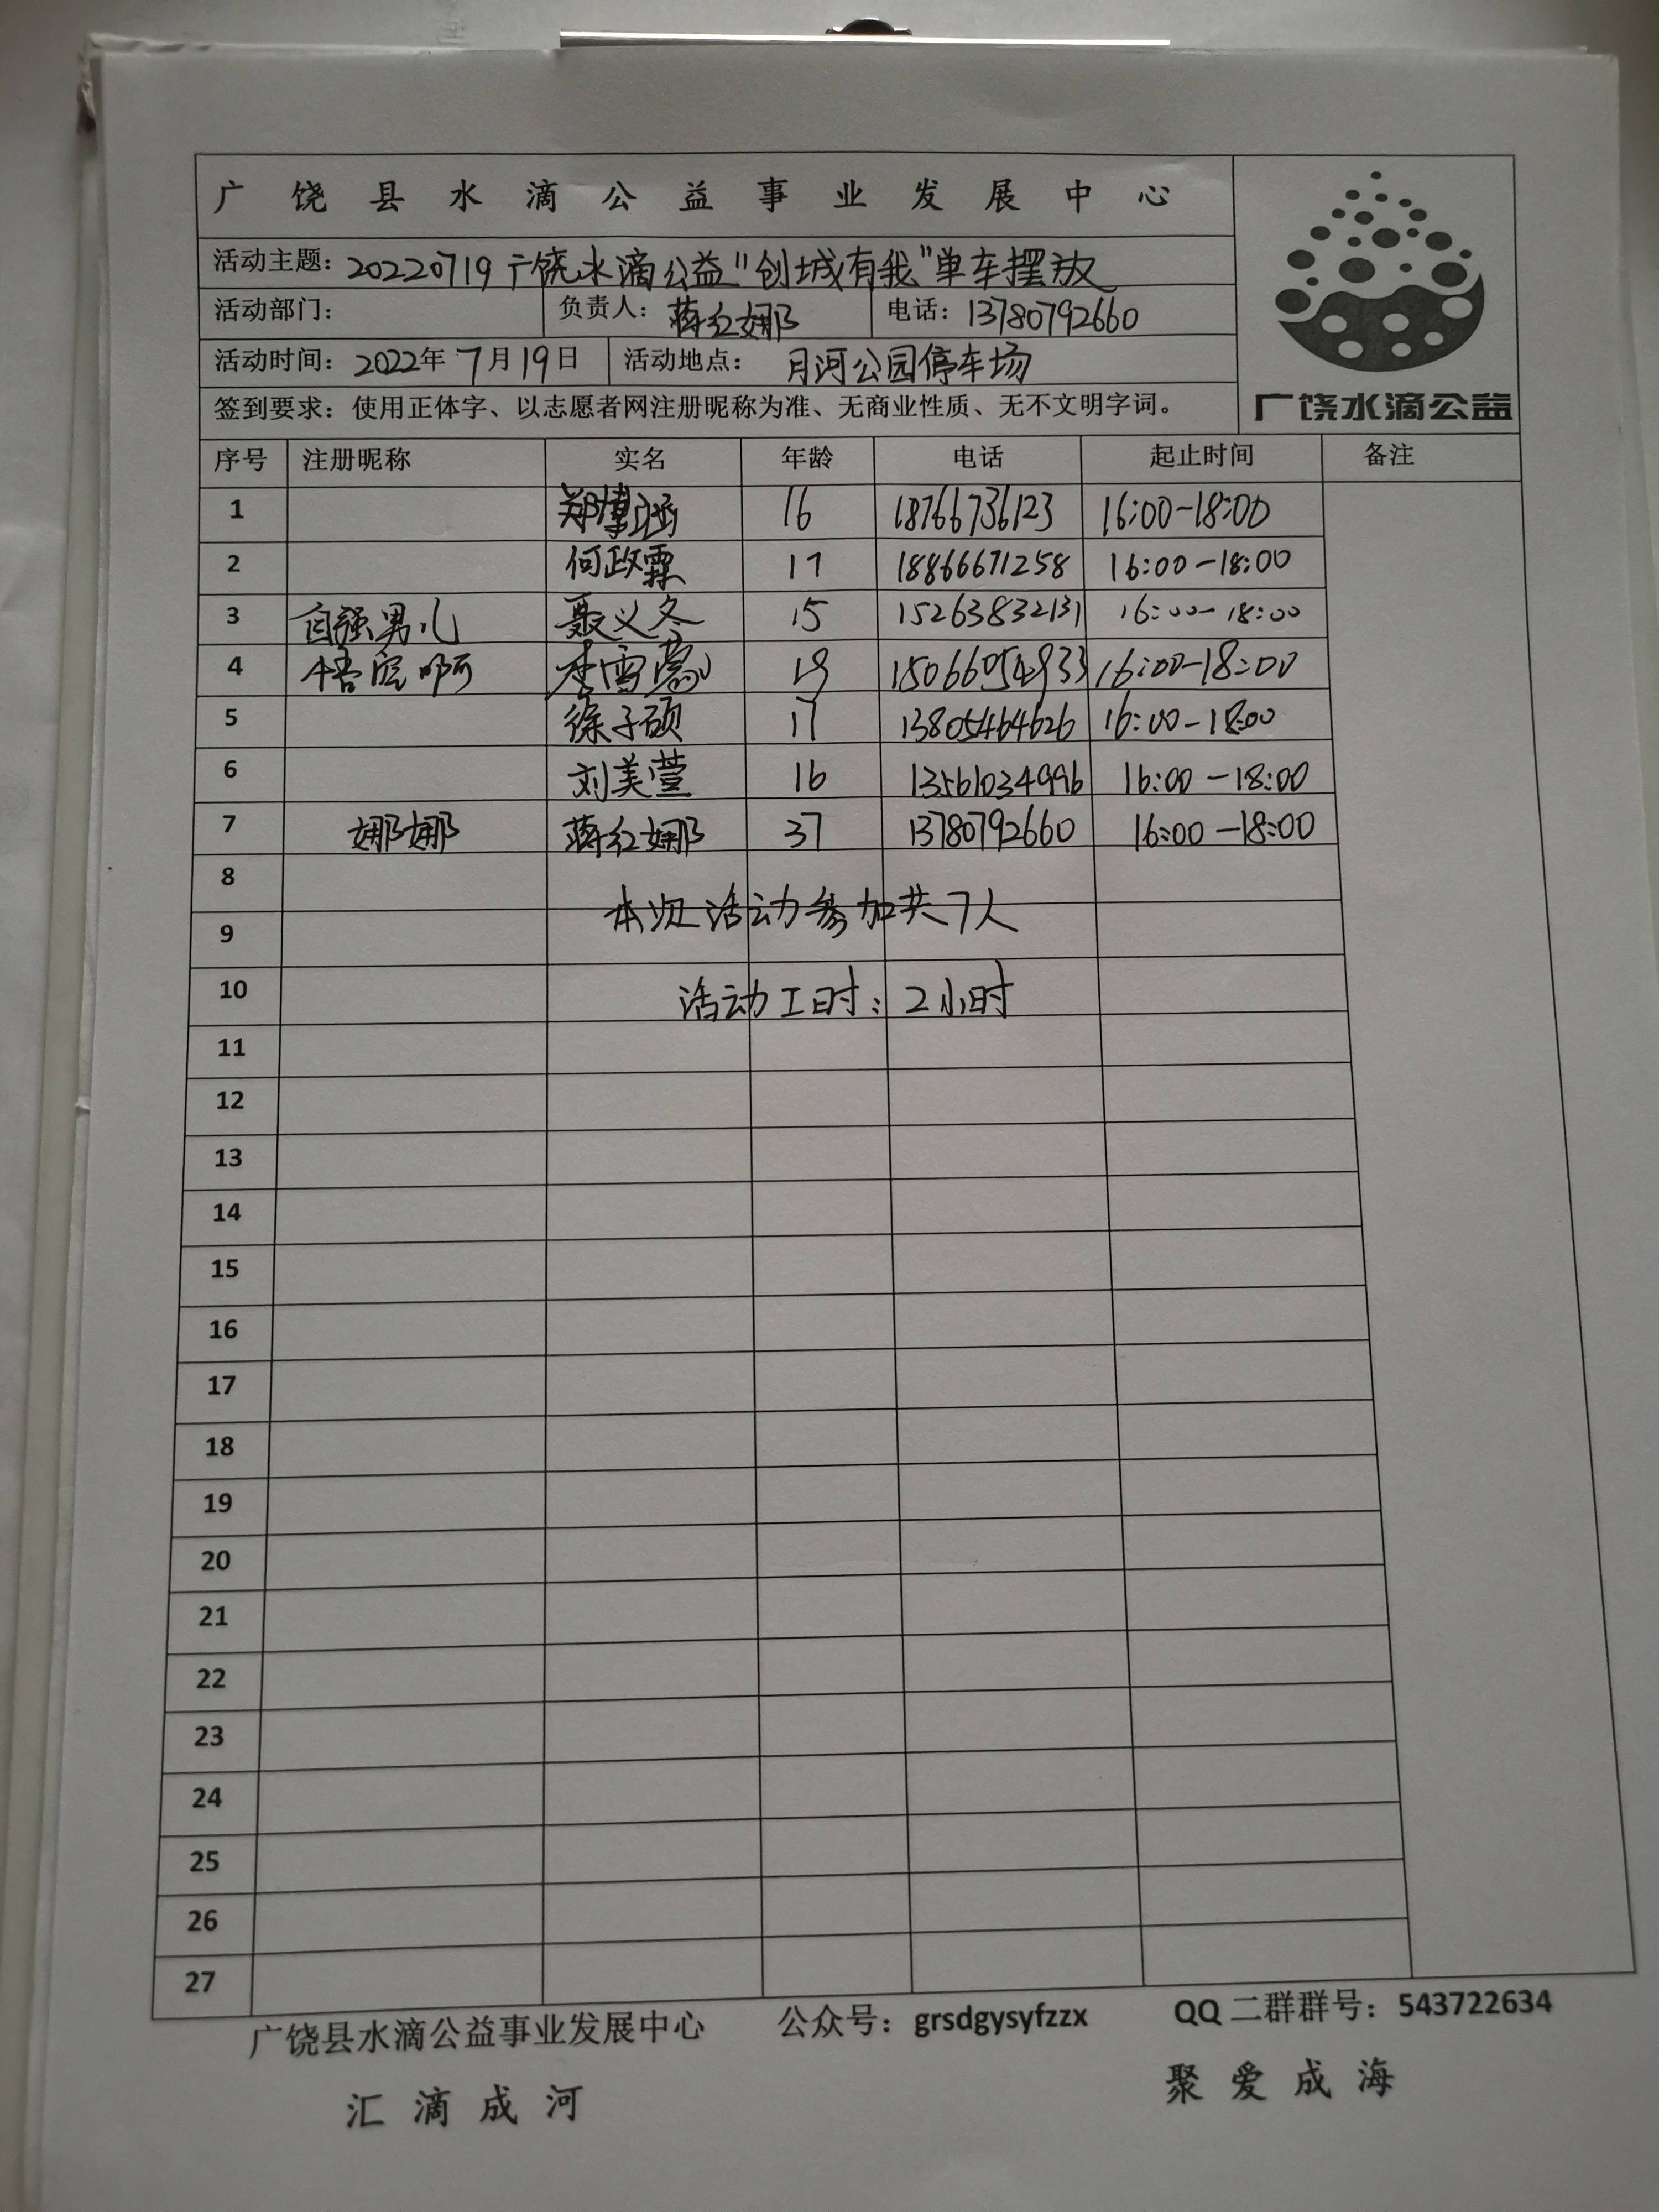 广饶县水滴公益事业发展中心
活动主题：20220719广饶水滴公益"创城有我"单车摆放
活动部门： 负责人：蒋红娜 电话：13780792660
活动时间：2022年7月19日 活动地点：月河公园停车场
签到要求：使用正体字、以志愿者网注册昵称为准、无商业性质、无不文明字词。
广饶水滴公益
序号 注册昵称 实名 年龄 电话 起止时间 备注
1 郑博涵 16 18766736123 16:00-18:00
2 何政霖 17 18866671258 16:00-18:00
3 自强男儿 聂义冬 15 15263832131 16:00-18:00
4 李雪 19 15066054933 16:00-18:00
5 徐子硕 17 13805464626 16:00-18:00
6 刘美萱 16 13561034996 16:00-18:00
7 娜娜 蒋红娜 37 13780792660 16:00-18:00
8
本次活动参加共7人
9
10 活动工时：2小时
11
12
13
14
15
16
17
18
19
20
21
22
23
24
25
26
27
广饶县水滴公益事业发展中心 公众号：grsdgysyfzzx QQ二群群号：543722634
汇滴成河 聚爱成海